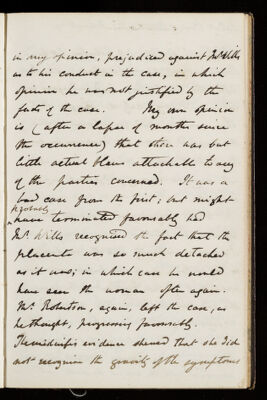 in my opinion, prejudiced against Mr. Wills
as to his conduct in the case, in which
opinion he was not justified by the
facts of the case. My own opinion
is (after a lapse of months since
the occurrence) that there was but
little actual blame attachable to any
of the parties concerned. It was a
bad case from the first; but might
probably
have terminated favorably had
Mr. Wills recognised the fact that the
placenta was so much detached
as it was; in which case he would
have seen the woman often again.
Mr. Robertson, again, left the case, as
he thought, progressing favorably.
The midwife's evidence shewed that she did
not recognise the gravity of the symptoms